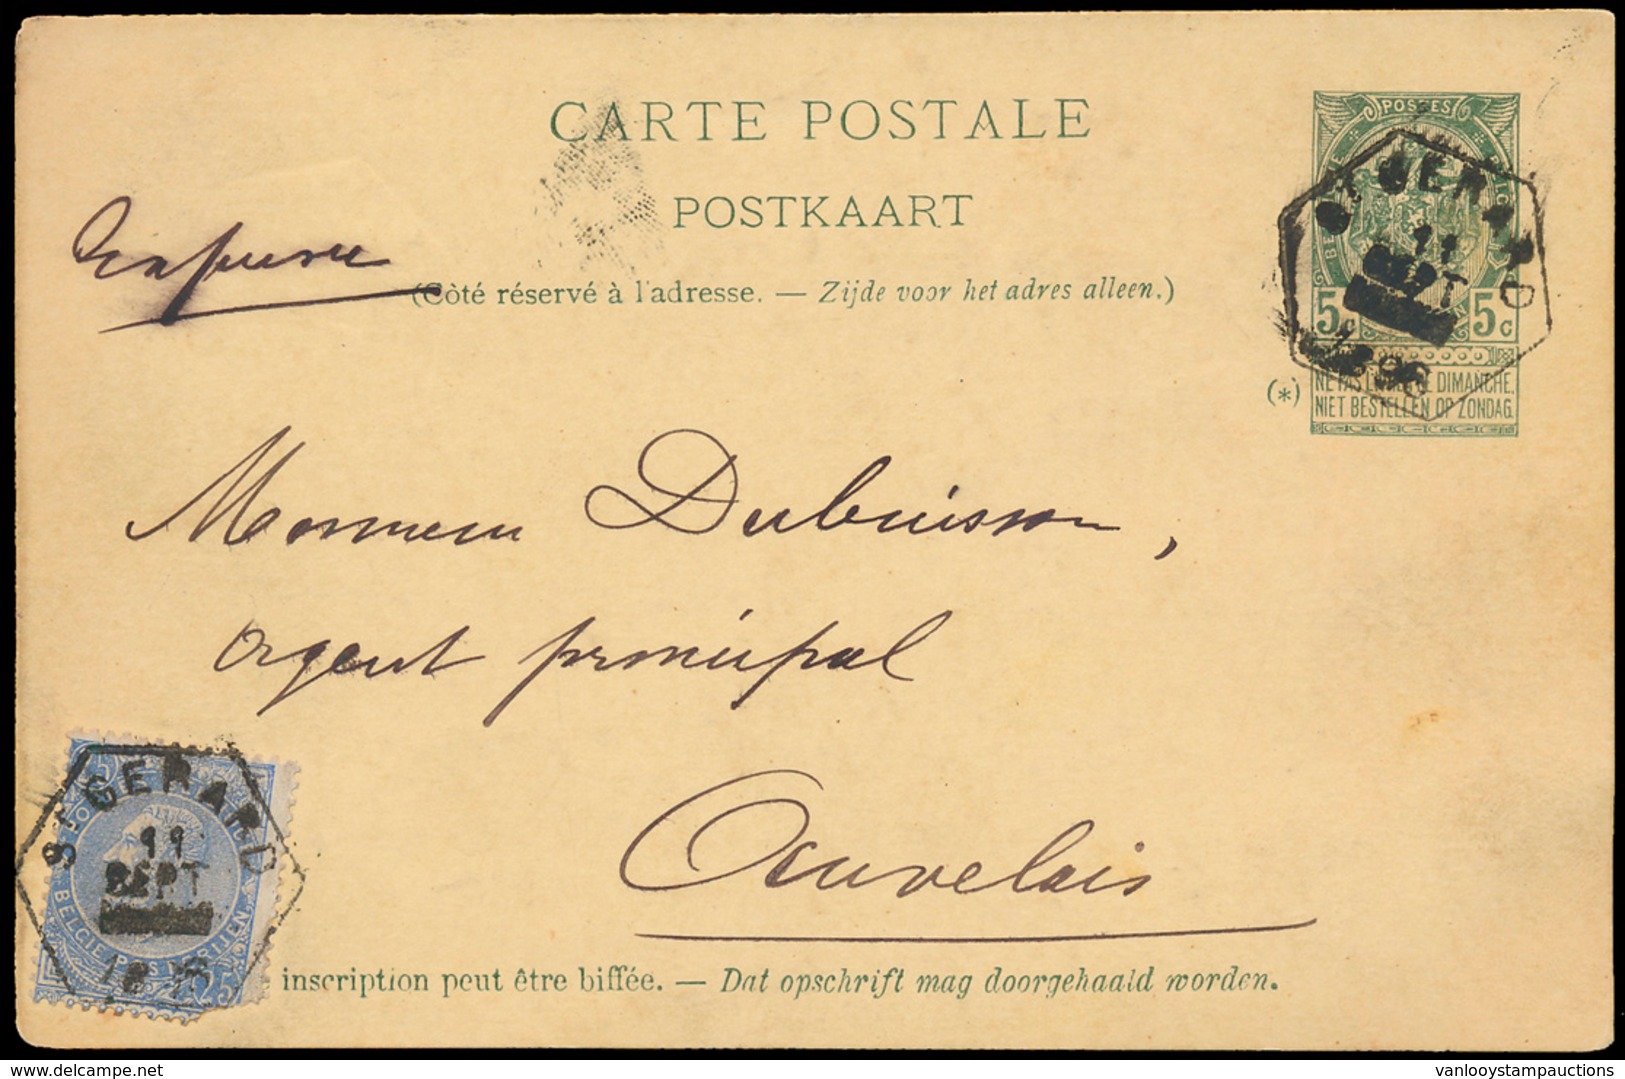 CARTE POSTALE
POSTKAART
(Côté réservé à l'adresse. — Zijde voor het adres alleen.)
POSTES
5c 5c
(*)
NE PAS LIVRER LE DIMANCHE.
NIET BESTELLEN OP ZONDAG.
ST GERARD
11
SEPT
1896
Monsieur Dubuisson,
agent principal
Auvelais
ST GERARD
11
SEPT
BELGIE POSTERIJEN
25
inscription peut être biffée. — Dat opschrift mag doorgehaald worden.
delcampe.net
vanlooystampauctions